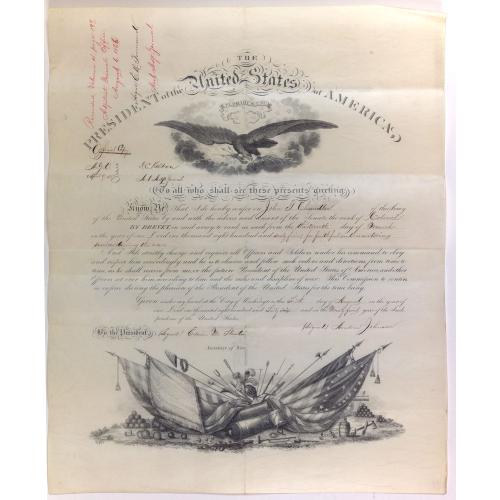 Adjutant General's Office
August 6 1866
THE
PRESIDENT of the United States of AMERICA,
To all who shall see these presents greeting:
Know Ye, That I do hereby confer on John G. Chandler of the Army
of the United States by and with the advice and consent of the Senate the rank of Colonel
BY BREVET, in said Army to rank as such from the thirteenth day of March
in the year of our Lord one thousand eight hundred and sixty five for faithful and meritorious
services during the war
And I do strictly charge and require all Officers and Soldiers under his command to obey
and respect him accordingly; and he is to observe and follow such orders and directions from time to
time, as he shall receive from me, or the future President of the United States of America and other
Officers set over him according to law, and the rules and discipline of war. This Commission to continue
in force during the pleasure of the President of the United States for the time being.
Given under my hand at the City of Washington this day of August in the year of
our Lord one thousand eight hundred and sixty six and in the Ninety first year of the Inde-
pendence of the United States.
By the President,
(Signed) Edwin M. Stanton
(Signed) Andrew Johnson
Secretary of War.